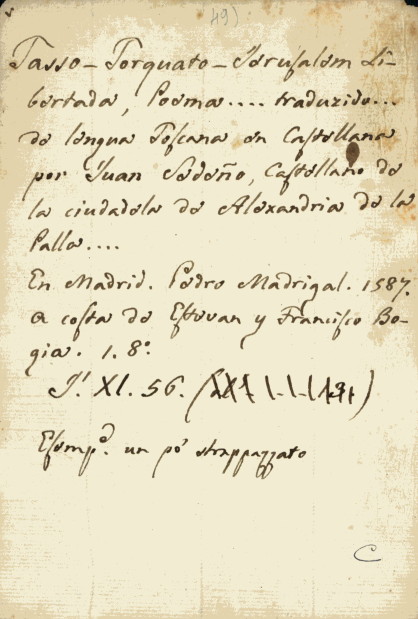 49)
Tasso - Torquato - Jerusalem Li-
bertada, Poema.... traduzido...
de lengua Toscana en Castellana
por Iuan Sedeño, Castellano de
la ciudadela de Alexandria de la
Palla....
En Madrid. Pedro Madrigal. 1587.
a costa de Estevan y Francisco Bo-
gia. 1. 8º.
J.' XI. 56.
Esempᵈ. un pò strappazzato
C